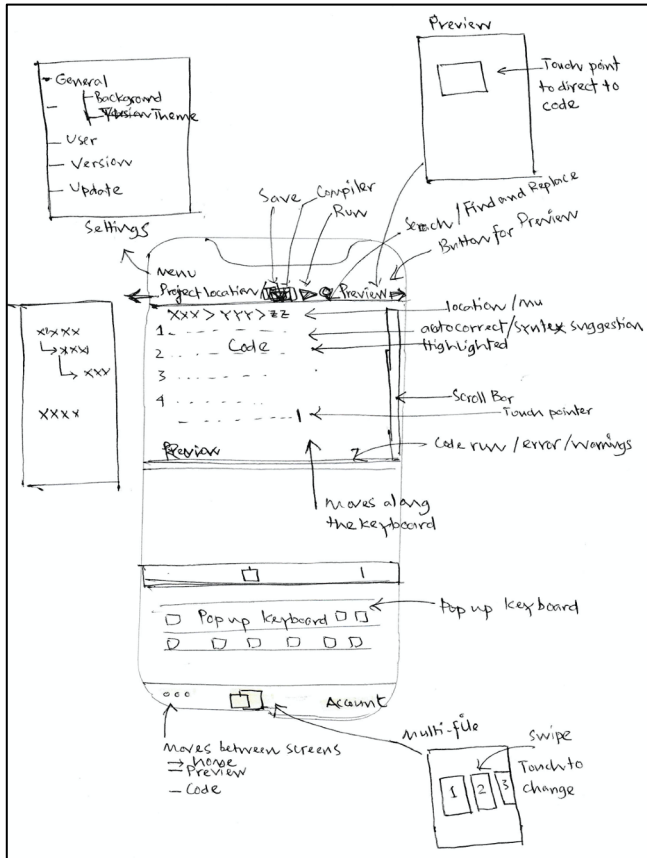 General
Background
Theme
User
Version
Update
Settings
Preview
Touch point
to direct to
code
Save
Compiler
Run
Search / Find and Replace
Button for Preview
Menu
Project location
Preview
xxx > YYY > zz
1
Code
2
3
4
Preview
location / mu
autocorrect/syntex suggestion
Highlighted
Scroll Bar
Touch pointer
Code run / error / warnings
xxxx
xxx
xxx
xxxx
moves along
the keyboard
Pop up keyboard
Pop up keyboard
Account
Moves between screens
Home
Preview
Code
Multi-file
Swipe
Touch to
change
1 2 3